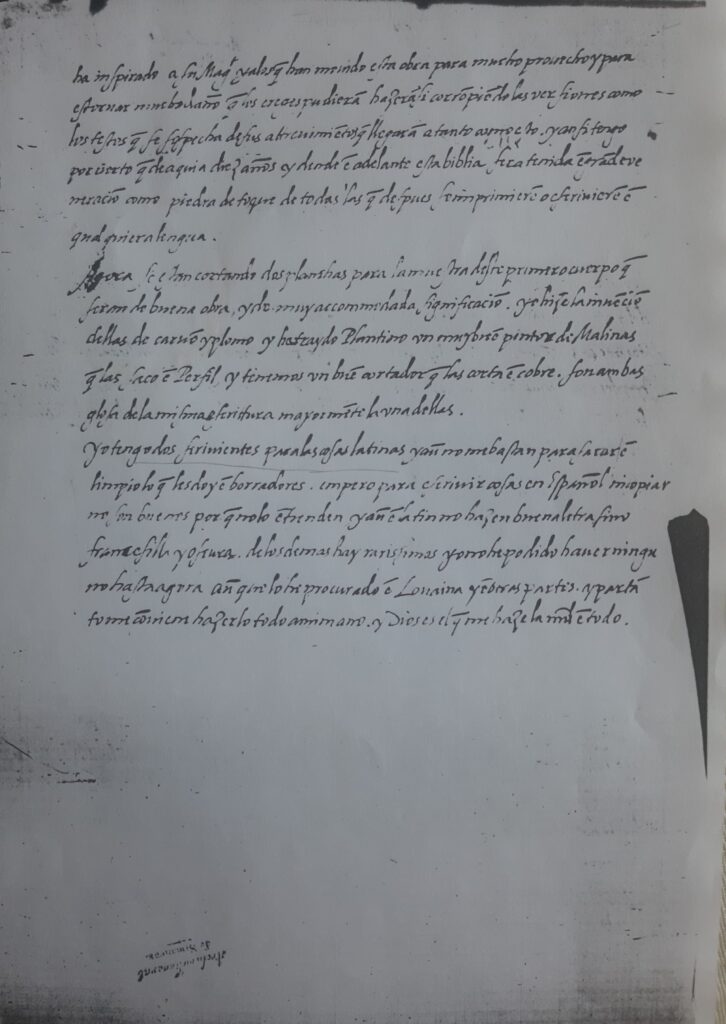 ha inspirado a su Mag.ᵈ y a los q̃ han movido esta obra para mucho provecho y para
estorvar mucho daño q̃ los erejes pudierã hazer
los testos q̃ se sospecha de sus atrevimientos q̃ llegarã a tanto como esto. y ansi tengo
por cierto q̃ de aqui a diez años y dende ẽ adelante esta biblia sera tenida ẽ grãde ve
neraciõ como piedra de toque de todas las q̃ despues se imprimierẽ oescrivierẽ ẽ
qual quiera lengua.
Agora se estan cortando dos planshas para la muestra deste primero cuerpo q̃
seran de buena obra, y de muy accommedada significaciõ. yo hize la invenciõ
dellas de carvõ y plomo y ha traydo Plantino un muy buẽ pintor de Malinas
q̃ las saco ẽ Perfil, y tenemos un buẽ cortador q̃ las corta ẽ cobre. son ambas
glosa de la misma escritura mayormẽte la una dellas.
Yo tengo dos scrivientes para las cosas latinas y aũ no me bastan para sacar ẽ
limpio lo q̃ les doy ẽ borradores. empero para escrivir cosas en Español ni copiar
no son buenos por q̃ no lo ẽtienden y aũ ẽ latin no hazen buena letra sino
francesilla y oscura. de los demas hay rarissimos yo no he podido haver ningu
no hasta agora aũ que lo he procurado ẽ Lovaina y ẽ otras partes. y por tã
to me cõviene hazerlo todo a mi mano. y Dios es el q̃ me haze la mrd̃ ẽ todo.
Archivo General
de Simancas